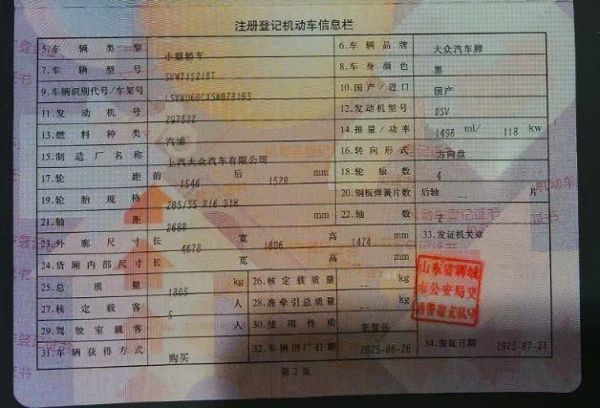 注册登记机动车信息栏
5.车辆类型 小型轿车 6.车辆品牌 大众汽车牌
7.车辆型号 8.车身颜色 黑
9.车辆识别代号/车架号 10.国产/进口 国产
11.发动机号 12.发动机型号 DSV
13.燃料种类 汽油 14.排量/功率 1498 ml/ 118 kw
15.制造厂名称 上汽大众汽车有限公司 16.转向形式 方向盘
17.轮距 前 1546 后 1520 mm 18.轮胎数 4
19.轮胎规格 205/55 R16 91H 20.钢板弹簧片数 后轴 -- 片
21.轴距 2688 mm 22.轴数 2
23.外廓尺寸 长 4678 宽 1806 高 1474 mm 33.发证机关章
24.货厢内部尺寸 长 宽 高 mm
25.总质量 1865 kg 26.核定载质量 -- kg
27.核定载客 5 人 28.准牵引总质量 -- kg
29.驾驶室载客 人 30.使用性质 非营运
31.车辆获得方式 购买 32.车辆出厂日期 2025-06-26 34.发证日期 2025-07-21
第2页